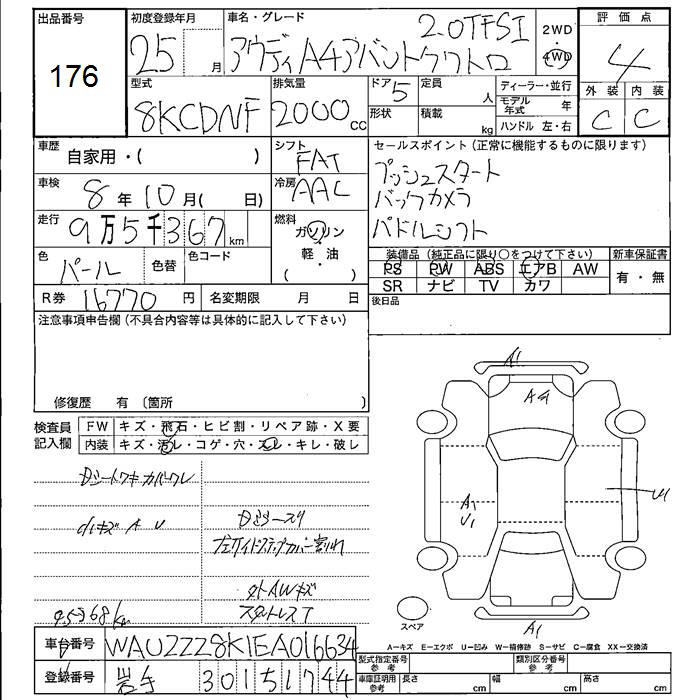 出品番号
176
初度登録年月
25 月
車名・グレード
2.0TFSI
アウディA4アバントクワトロ
2WD
4WD
評価点
4
型式
8KCDNF
排気量
2000 cc
ドア
5
定員
人
形状
積載
kg
ディーラー・並行
モデル年式 年
ハンドル 左・右
外装
内装
C
C
車歴
自家用・( )
シフト
FAT
セールスポイント(正常に機能するものに限ります)
プッシュスタート
バックカメラ
パドルシフト
車検
8 年 10 月( 日)
冷房
AAC
走行
9万5千367 km
燃料
ガソリン
・
軽・油
( )
色
パール
色替
色コード
装備品(純正品に限り○をつけて下さい)
PS PW ABS エアB AW
SR ナビ TV カワ
新車保証書
有・無
R券 16770 円
名変期限 月 日
後日品
注意事項申告欄(不具合内容等は具体的に記入して下さい)
修復歴 有 〔箇所 〕
検査員記入欄
FW キズ・飛石・ヒビ割・リペア跡・X要
内装 キズ・汚レ・コゲ・穴・スレ・キレ・破レ
キズ A U
左サイドステップカバー割れ
外AWキズ
スタットレスT
95368km
A1
A4
A1
U1
U1
A1
スペア
A−キズ E−エクボ U−凹み W−補修跡 S−サビ C−腐食 XX−交換済
車台番号
WAUZZZ8K1EA016634
登録番号
岩手 301 5 1744
型式指定番号
参考
類別区分番号
参考
車庫証明用
参考
長さ cm
幅 cm
高さ cm